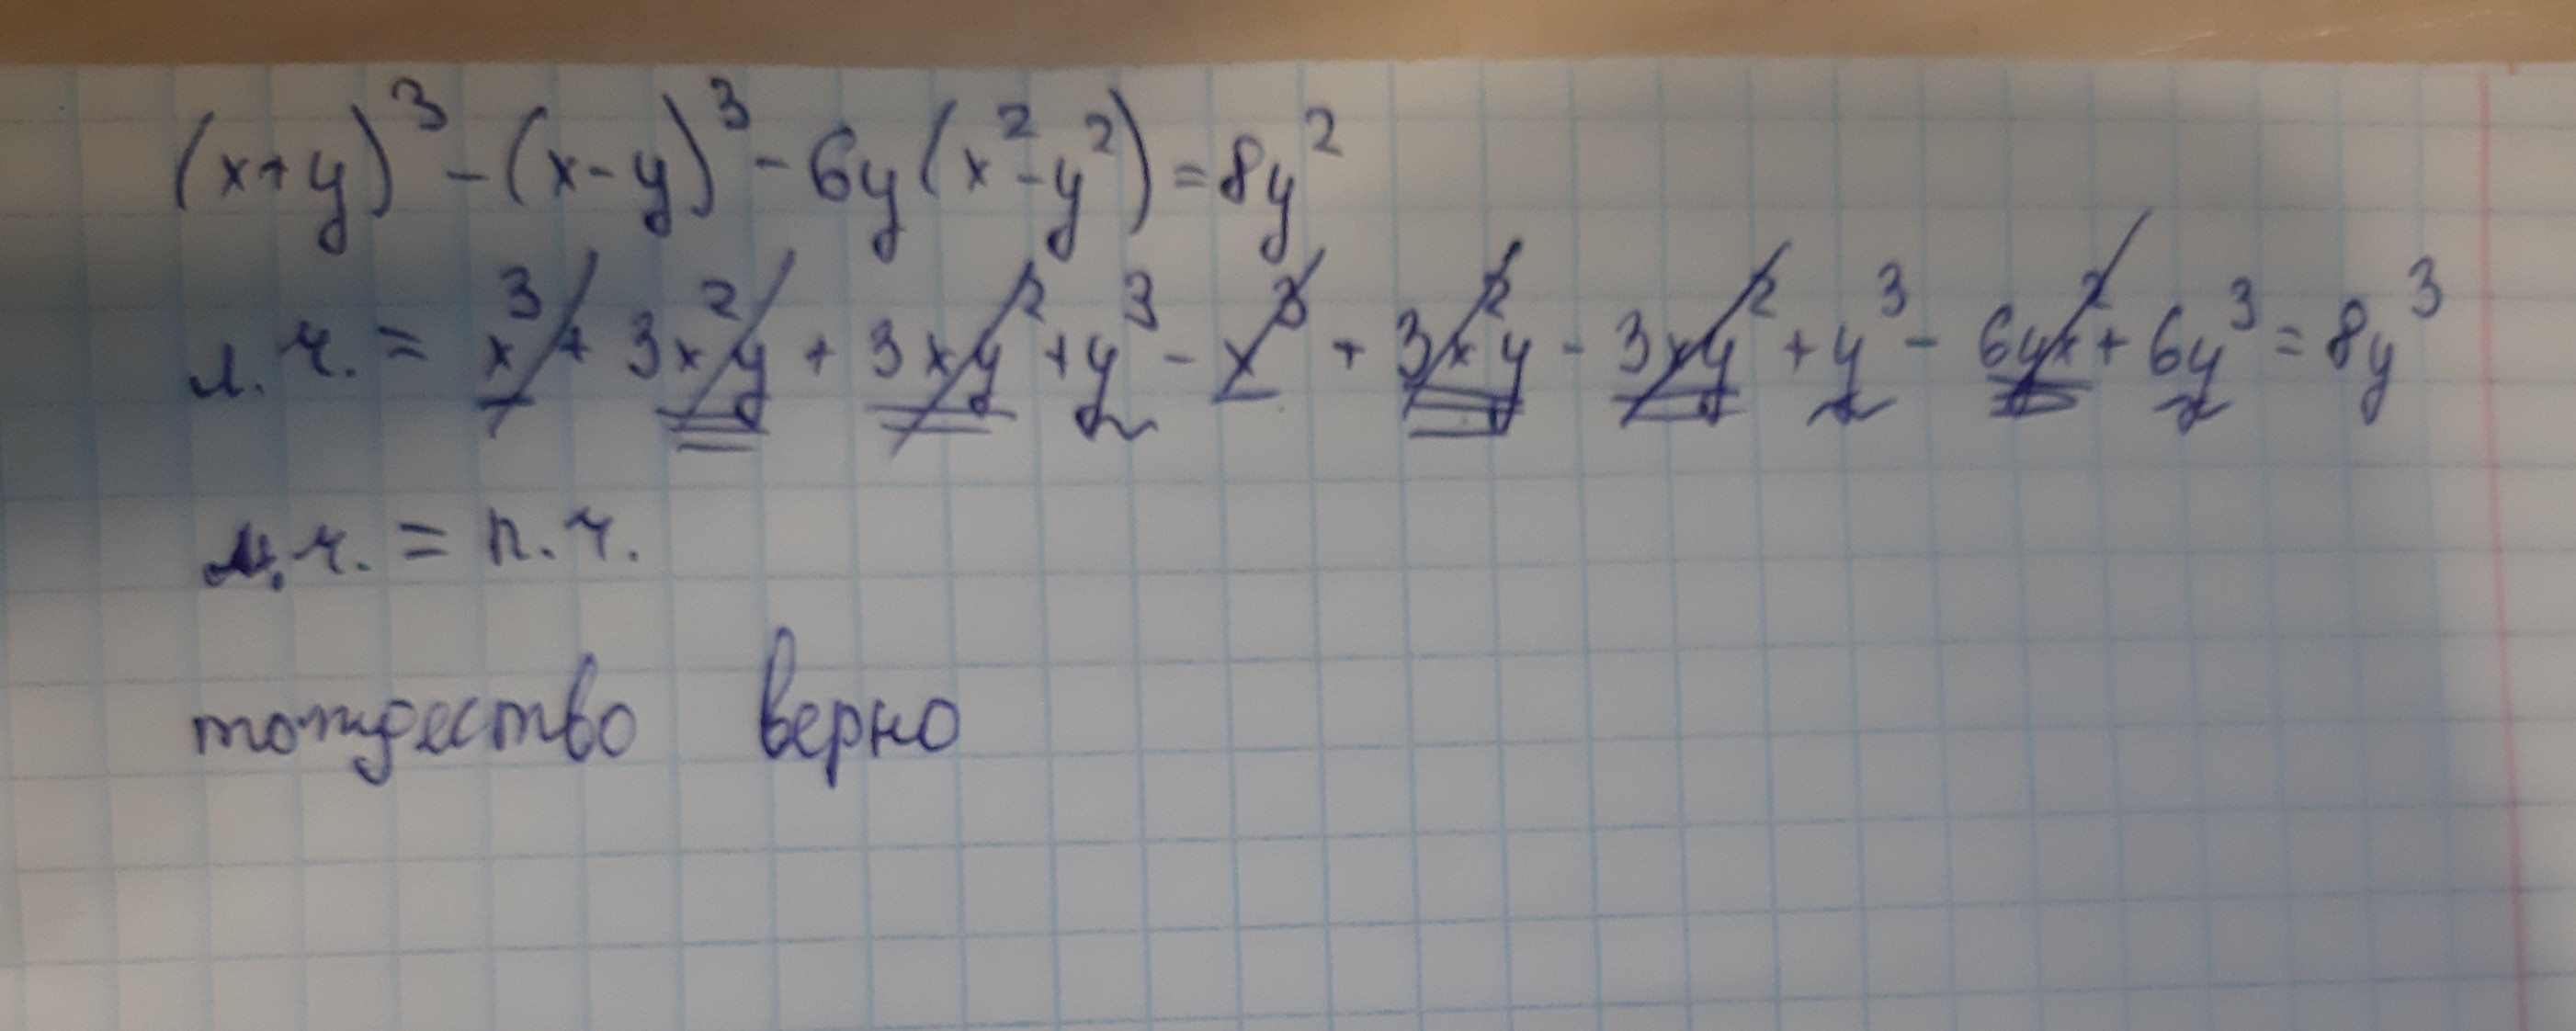 (x+y)³-(x-y)³-6y(x²-y²)=8y²
л.ч.=x³+3x²y+3xy²+y³-x³+3x²y-3xy²+y³-6yx²+6y³=8y³
л.ч.=п.ч.
тождество верно